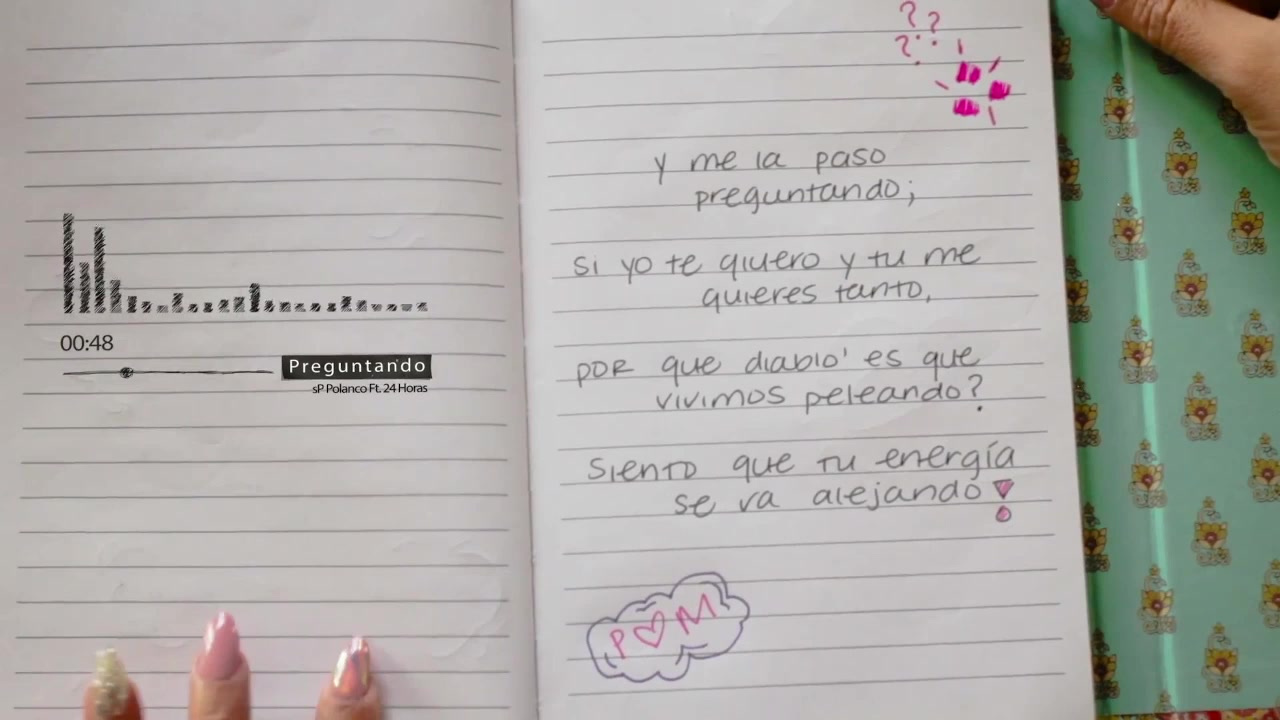 00:48
Preguntando
sP Polanco Ft. 24 Horas
? ?
?
y me la paso
preguntando;
si yo te quiero y tu me
quieres tanto,
por que diablo' es que
vivimos peleando?
siento que tu energía
se va alejando!
P♡M